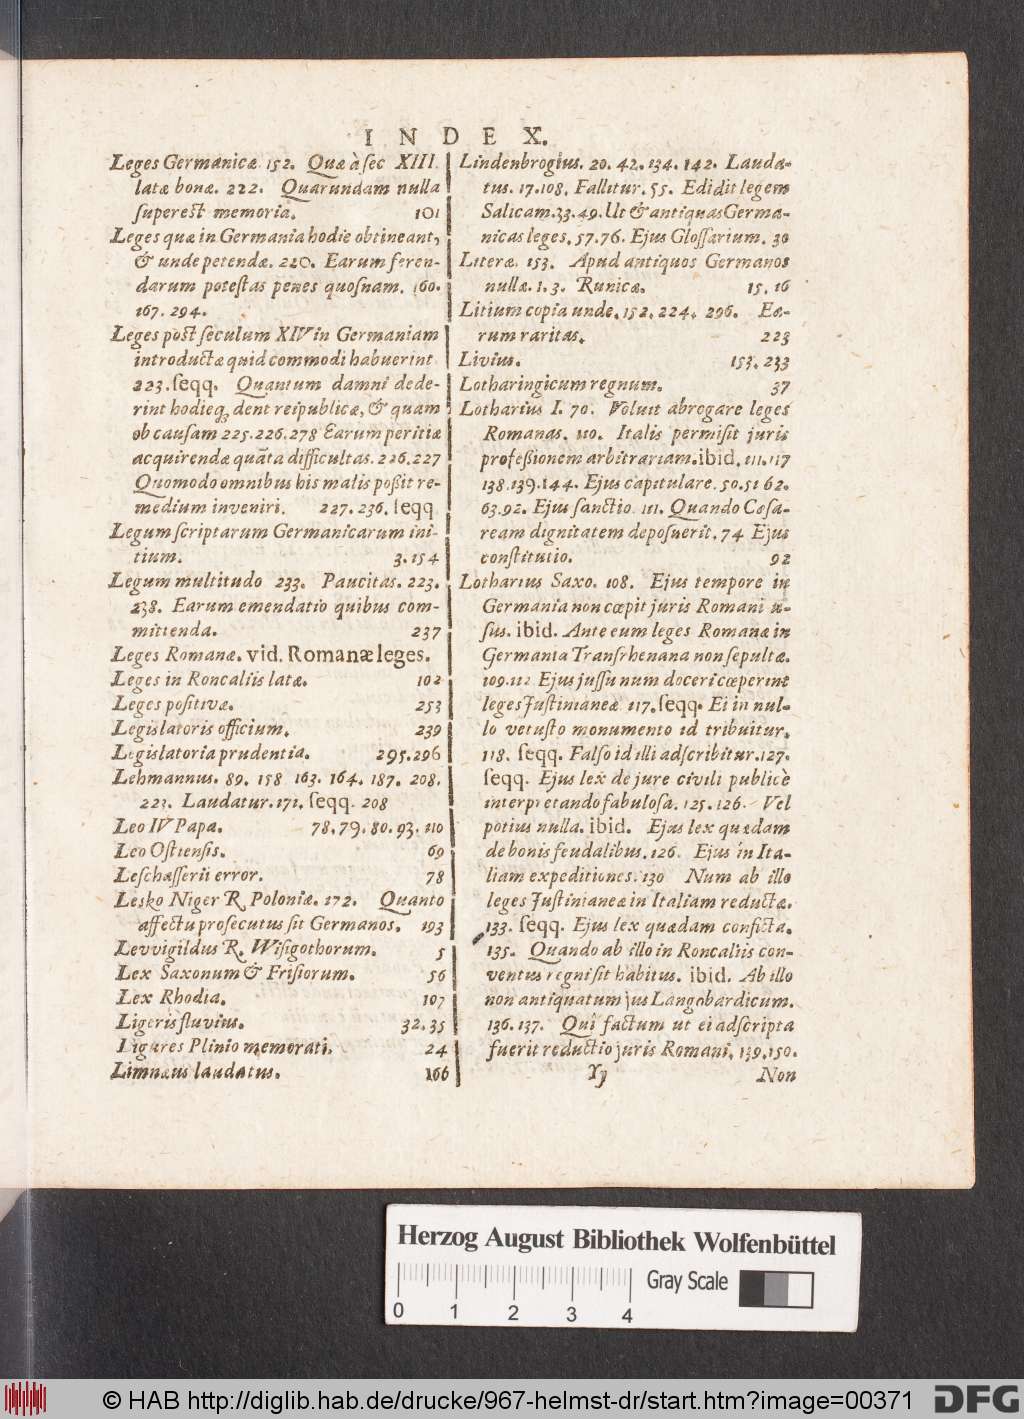 INDEX.
Leges Germanicæ. 152. Quæ à sec XIII.
latæ bonæ. 222. Quarundam nulla
superest memoria. 101
Leges quæ in Germania hodie obtineant,
& unde petendæ. 220. Earum feren-
darum potestas penes quosnam. 160.
167. 294.
Leges post seculum XIV in Germaniam
introductæ quid commodi habuerint
223. seqq. Quantum damni dede-
rint hodieq; dent reipublicæ, & quam
ob causam 225. 226. 278 Earum peritiæ
acquirendæ quāta difficultas. 226. 227
Quomodo omnibus his malis poßit re-
medium inveniri. 227. 236. seqq
Legum scriptarum Germanicarum ini-
tium. 3. 154
Legum multitudo 233. Paucitas. 223.
238. Earum emendatio quibus com-
mittenda. 237
Leges Romanæ. vid. Romanæ leges.
Leges in Roncaliis latæ. 102
Leges positivæ. 253
Legislatoris officium. 239
Legislatoria prudentia. 295. 296
Lehmannus. 89. 158 163. 164. 187. 208.
221. Laudatur. 171. seqq. 208
Leo IV Papa. 78. 79. 80. 93. 110
Leo Ostiensis. 69
Leschasserii error. 78
Lesko Niger R. Poloniæ. 172. Quanto
affectu prosecutus sit Germanos. 193
Levvigildus R. Wisigothorum. 5
Lex Saxonum & Frisiorum. 56
Lex Rhodia. 107
Ligeris fluvius. 32. 35
Ligures Plinio memorati. 24
Limnæus laudatus. 166
Lindenbrogius. 20. 42. 134. 142. Lauda-
tus. 17. 108. Fallitur. 55. Edidit legem
Salicam. 33. 49. Ut & antiquas Germa-
nicas leges. 57. 76. Ejus Glossarium. 30
Literæ. 153. Apud antiquos Germanos
nullæ. 1. 3. Runicæ. 15. 16
Litium copia unde. 152. 224. 296. Ea-
rum raritas. 223
Livius. 153. 233
Lotharingicum regnum. 37
Lotharius I. 70. Voluit abrogare leges
Romanas. 110. Italis permisit juris
profeßionem arbitrariam. ibid. 111. 117
138. 139. 144. Ejus capitulare. 50. 51 62.
63. 92. Ejus sanctio 111. Quando Cæsa-
ream dignitatem deposuerit. 74 Ejus
constitutio. 92
Lotharius Saxo. 108. Ejus tempore in
Germania non cœpit juris Romani u-
sus. ibid. Ante eum leges Romanæ in
Germania Transrhenana non sepultæ.
109. 112 Ejus jussu num doceri cœperint
leges Justinianeæ 117. seqq. Ei in nul-
lo vetusto monumento id tribuitur.
118. seqq. Falso id illi adscribitur. 127.
seqq. Ejus lex de jure civili publicè
interpretando fabulosa. 125. 126. Vel
potius nulla. ibid. Ejus lex quædam
de bonis feudalibus. 126. Ejus in Ita-
liam expeditiones. 130 Num ab illo
leges Justinianeæ in Italiam reductæ.
133. seqq. Ejus lex quædam conficta.
135. Quando ab illo in Roncaliis con-
ventus regni sit habitus. ibid. Ab illo
non antiquatum jus Langobardicum.
136. 137. Qui factum ut ei adscripta
fuerit reductio juris Romani. 139. 150.
Yy Non
Herzog August Bibliothek Wolfenbüttel
Gray Scale
0 1 2 3 4
© HAB http://diglib.hab.de/drucke/967-helmst-dr/start.htm?image=00371
DFG